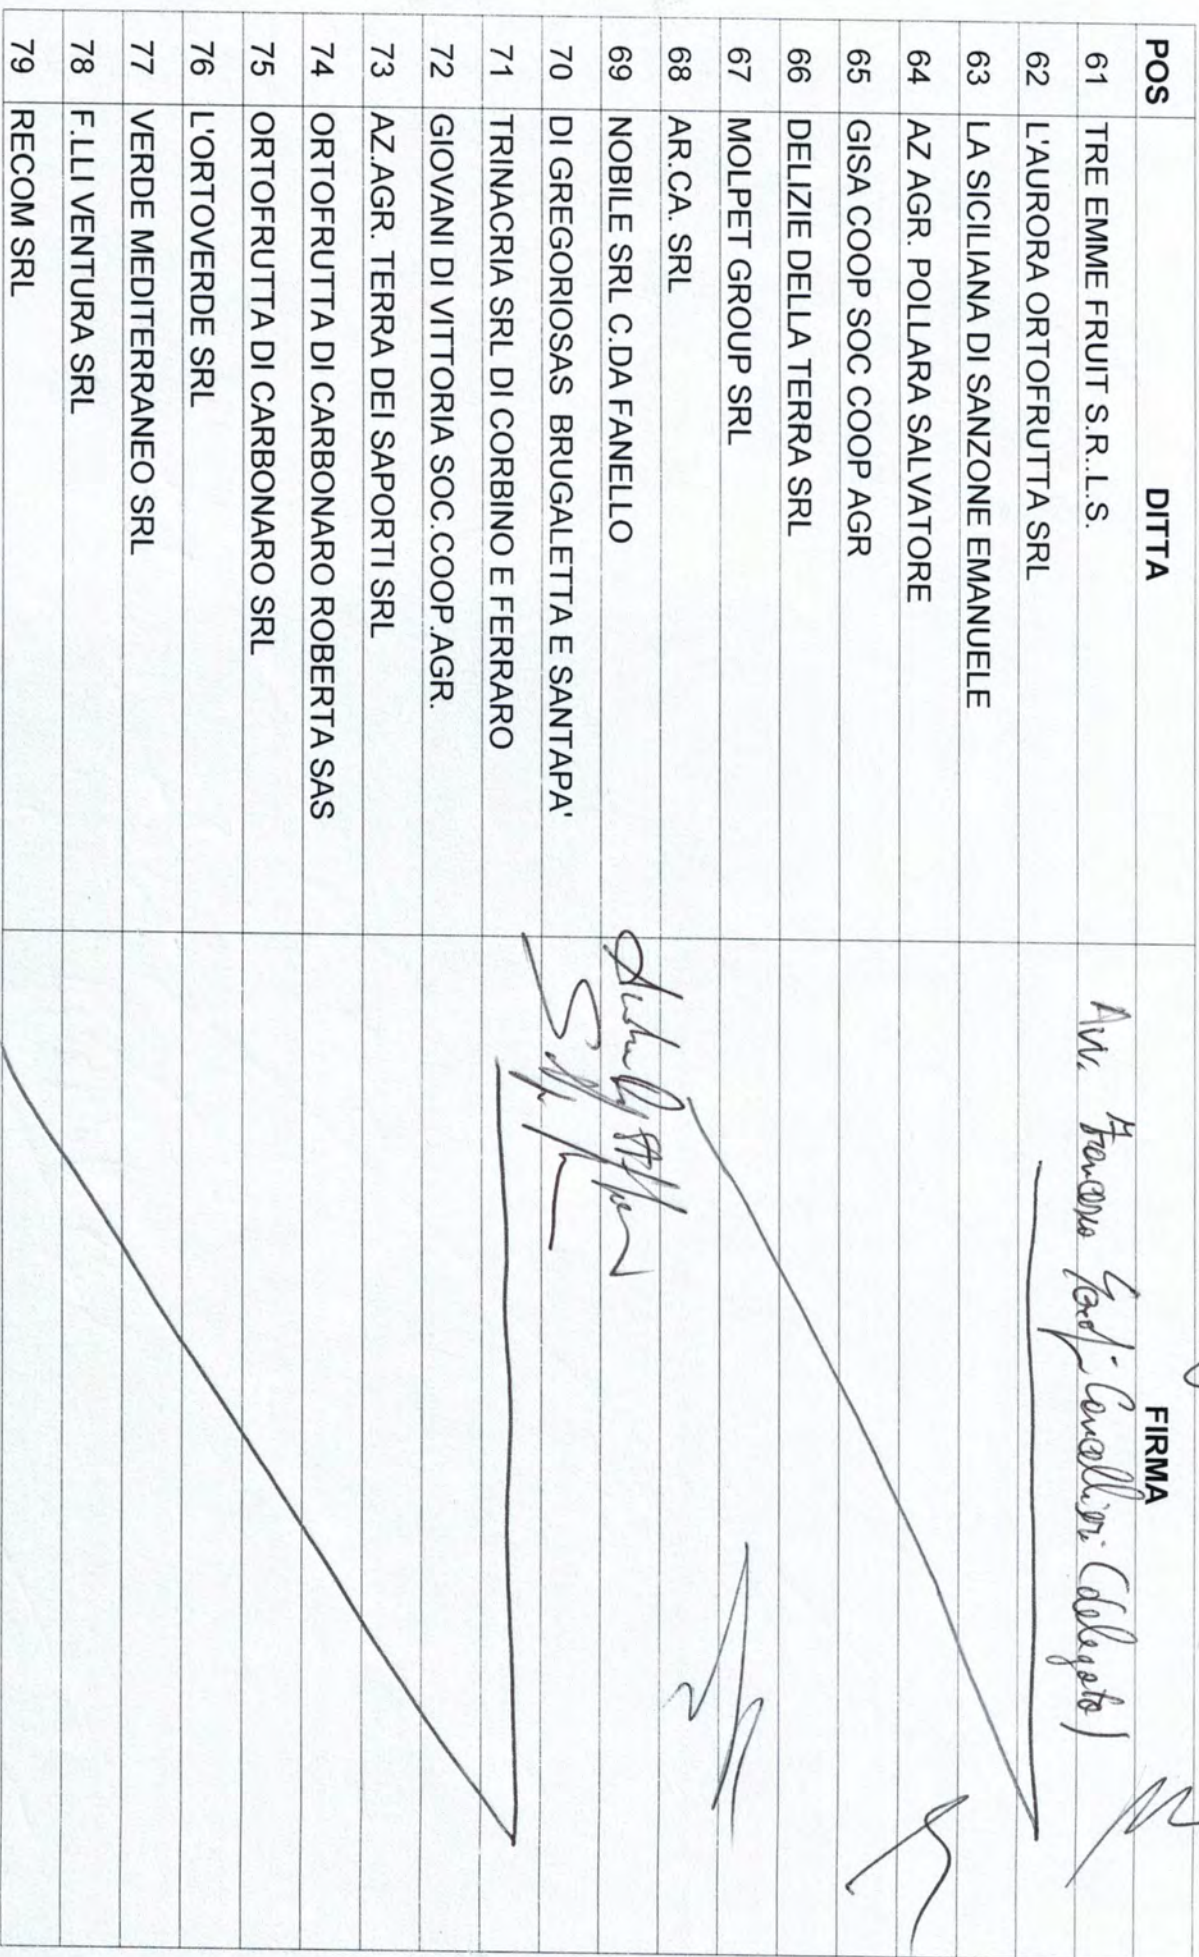 POS DITTA FIRMA
61 TRE EMME FRUIT S.R..L.S. Avv. Francesco Cancellieri (delegato)
62 L'AURORA ORTOFRUTTA SRL
63 LA SICILIANA DI SANZONE EMANUELE
64 AZ AGR. POLLARA SALVATORE
65 GISA COOP SOC COOP AGR
66 DELIZIE DELLA TERRA SRL
67 MOLPET GROUP SRL
68 AR.CA. SRL
69 NOBILE SRL C.DA FANELLO
70 DI GREGORIOSAS BRUGALETTA E SANTAPA'
71 TRINACRIA SRL DI CORBINO E FERRARO
72 GIOVANI DI VITTORIA SOC.COOP.AGR.
73 AZ.AGR. TERRA DEI SAPORTI SRL
74 ORTOFRUTTA DI CARBONARO ROBERTA SAS
75 ORTOFRUTTA DI CARBONARO SRL
76 L'ORTOVERDE SRL
77 VERDE MEDITERRANEO SRL
78 F.LLI VENTURA SRL
79 RECOM SRL